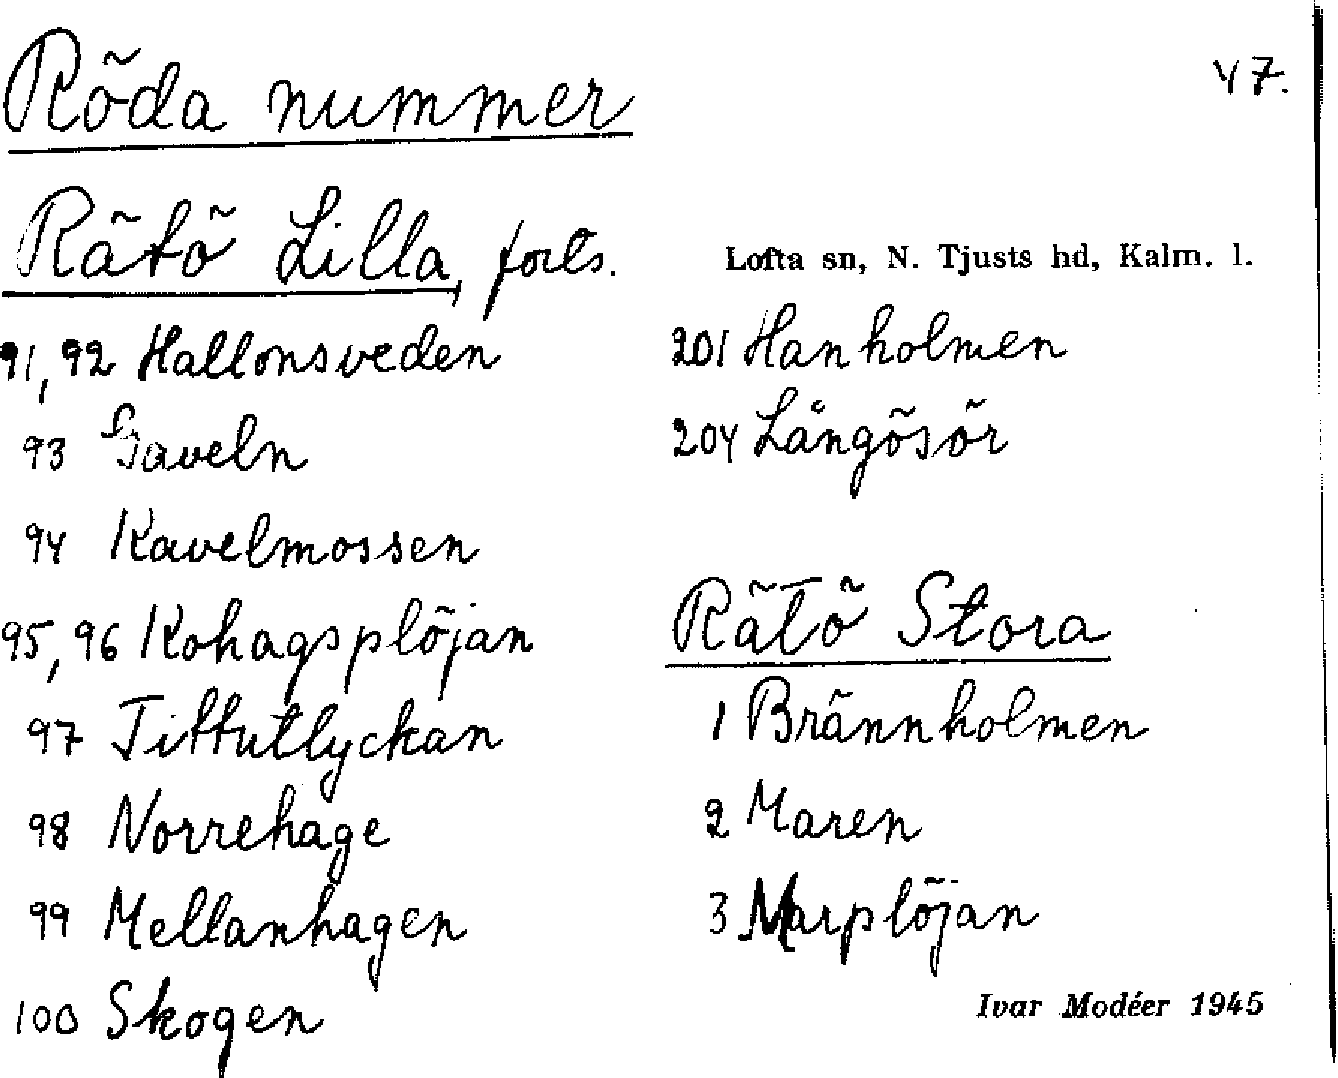 Röda nummer
47.
Rätö Lilla, forts.
Lofta sn, N. Tjusts hd, Kalm. l.
91, 92 Hallonsveden
93 Gaveln
94 Kavelmossen
95, 96 Kohagsplöjan
97 Tittutlyckan
98 Norrehage
99 Mellanhagen
100 Skogen
201 Hanholmen
204 Långösör
Rätö Stora
1 Brännholmen
2 Maren
3 Marplöjan
Ivar Modéer 1945